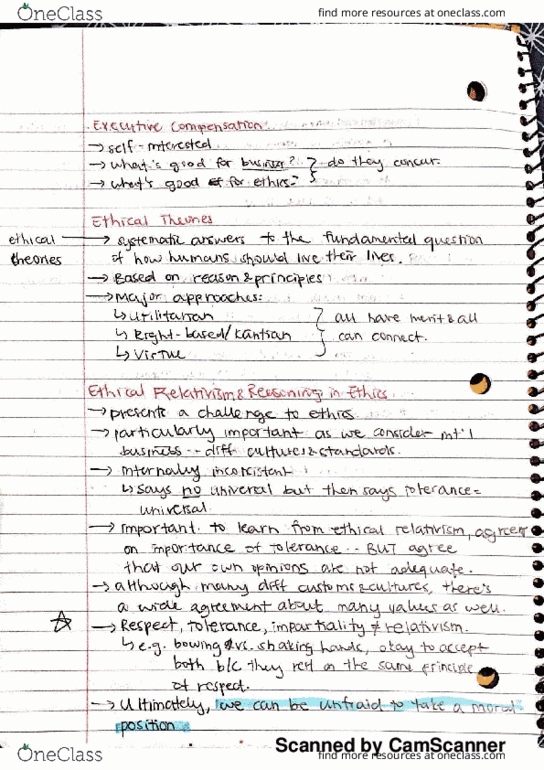 OneClass
find more resources at oneclass.com
Executive Compensation:
→ self-interested
→ what's good for business? } do they concur.
→ what's good for ethics?
Ethical Theories
ethical theories
→ systematic answers to the fundamental question
of how humans should live their lives.
→ Based on reason & principles
→ Major approaches:
↳ Utilitarian } all have merit & all
↳ Right-based/Kantian can connect.
↳ Virtue
Ethical Relativism & Reasoning in Ethics
→ presents a challenge to ethics
→ particularly important as we consider int'l
business -- diff cultures & standards.
→ Internally inconsistent
↳ says no universal but then says tolerance =
universal.
→ Important to learn from ethical relativism, agree
on importance of tolerance -- BUT agree
that our own opinions are not adequate.
→ although many diff customs & cultures, there's
a wide agreement about many values as well.
☆ → Respect, tolerance, impartiality ≠ relativism.
↳ e.g. bowing vs. shaking hands, okay to accept
both b/c they rest on the same principle
of respect.
→ Ultimately, we can be unfraid to take a moral
position
Scanned by CamScanner
OneClass
find more resources at oneclass.com